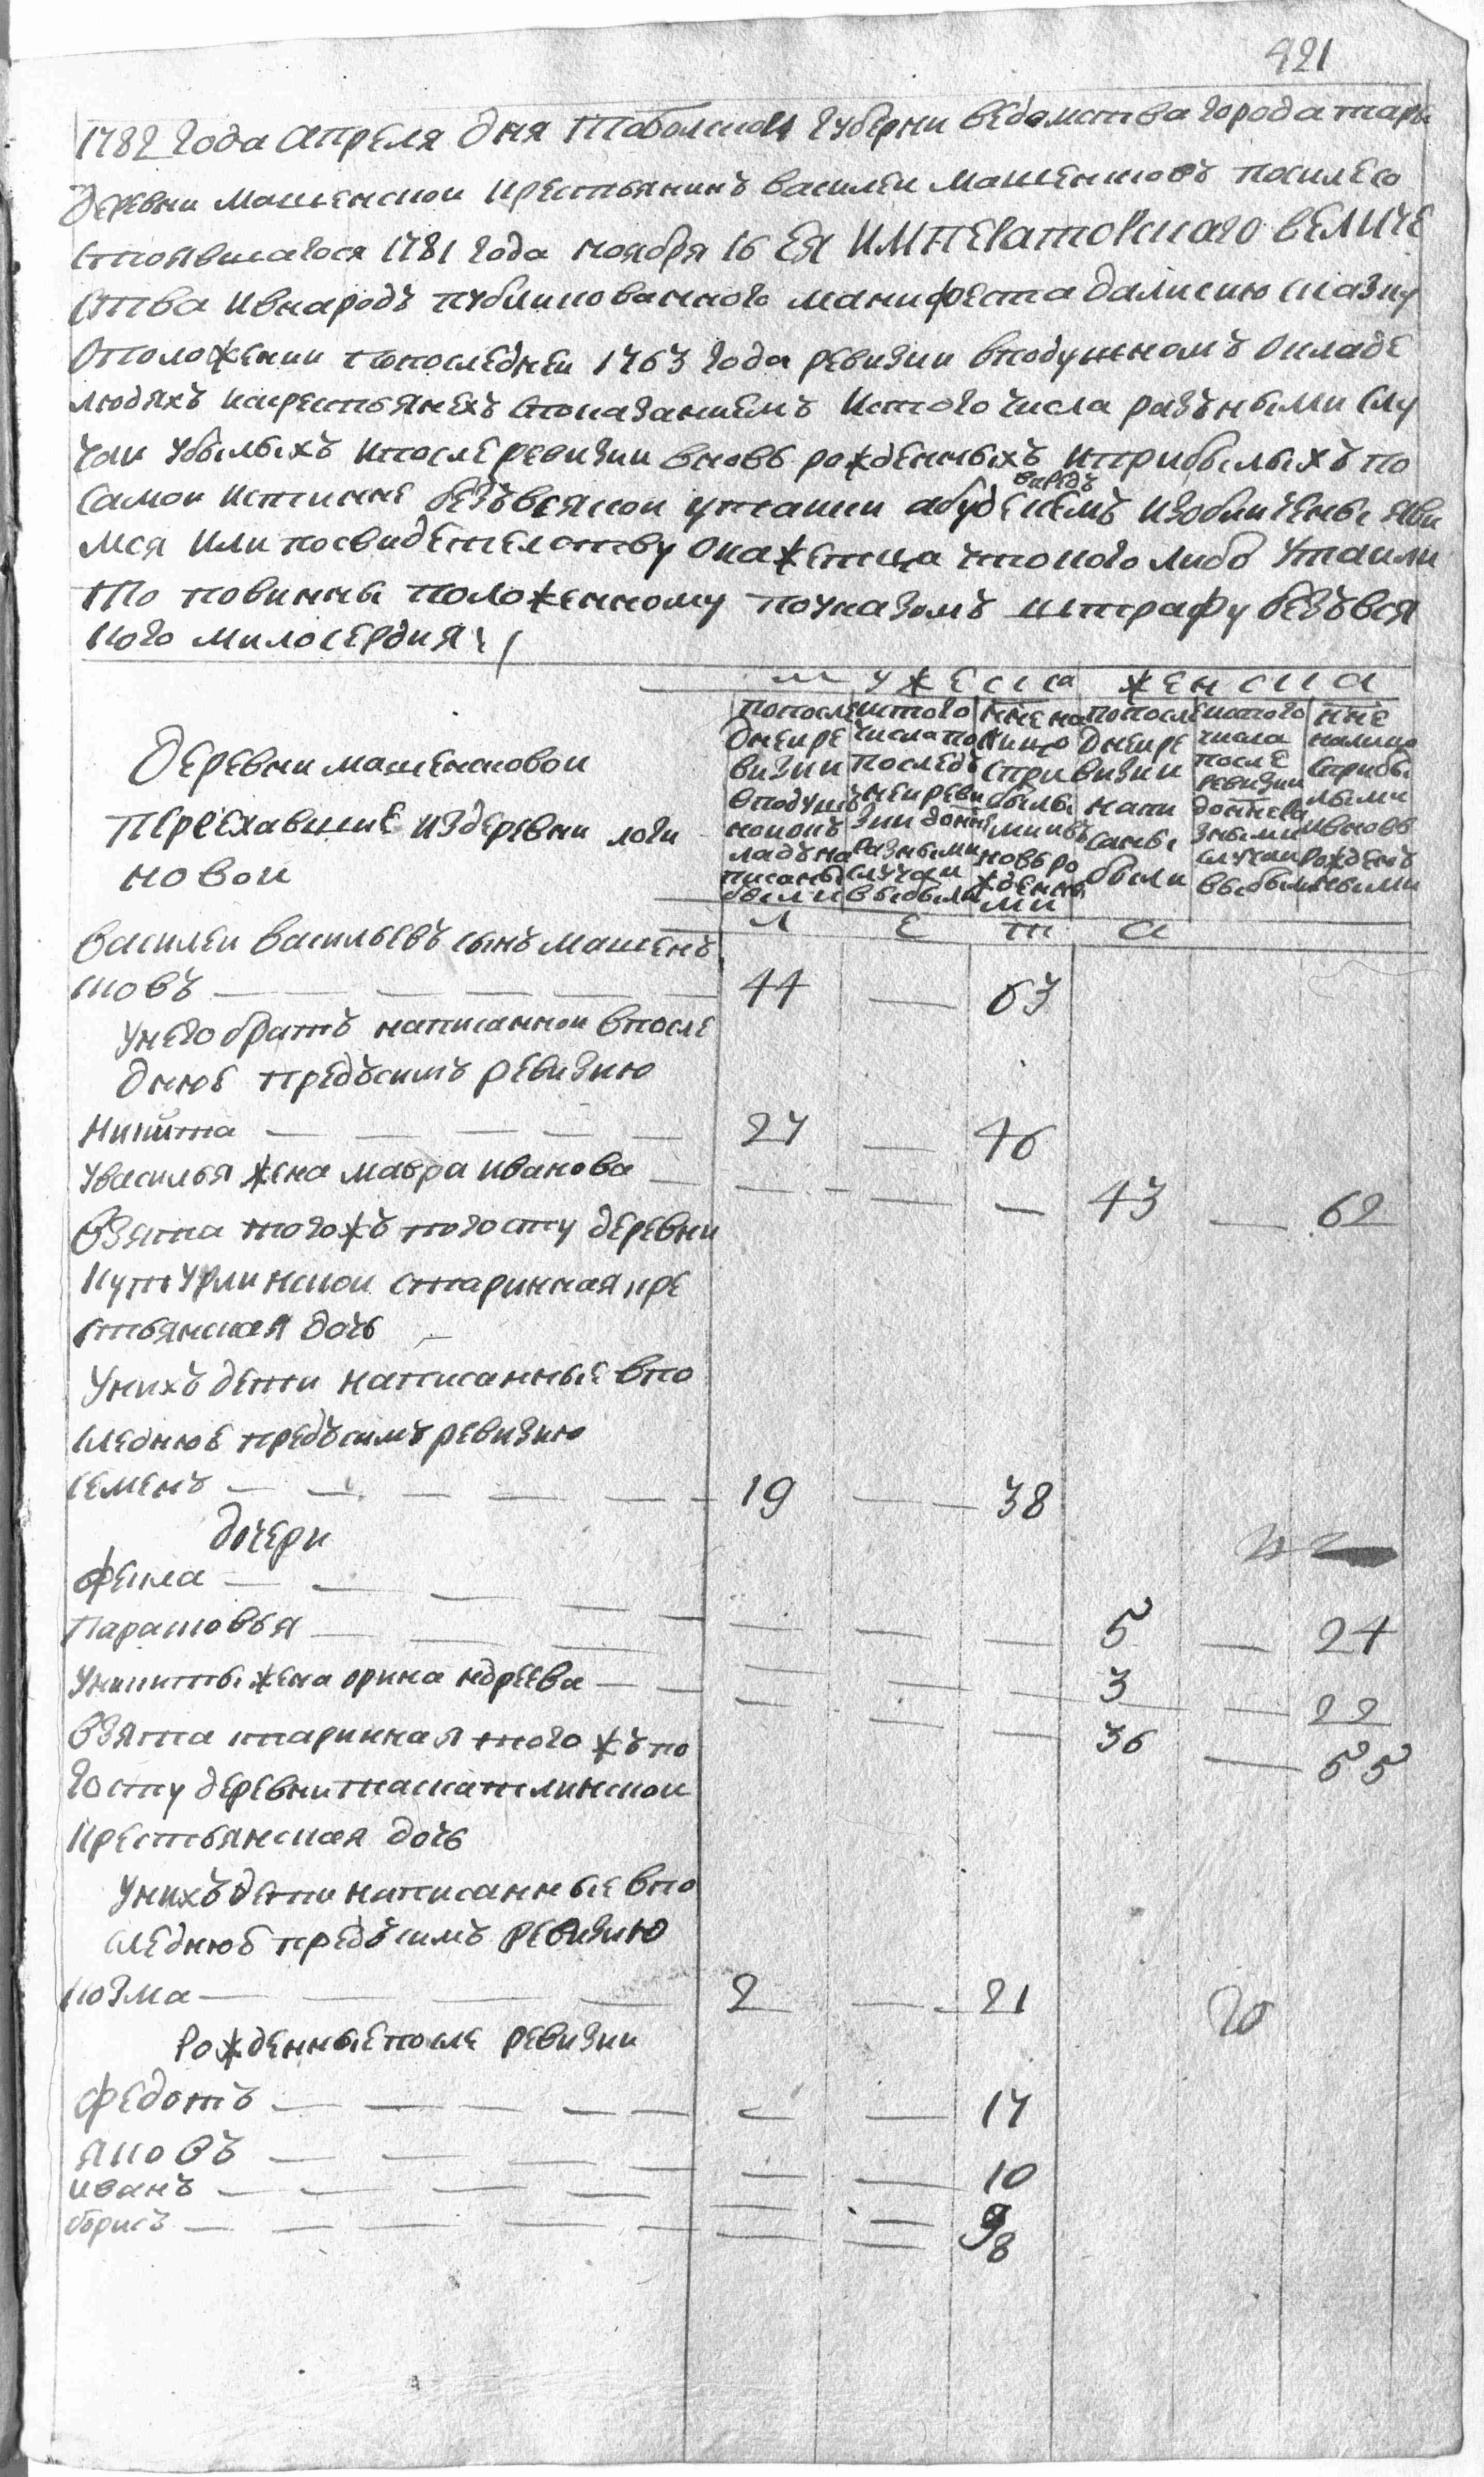 421
1782 года апреля дня тоболскои губерни ведомства города тары
деревни машенскои крестьянинъ василеи машенсковъ посиле со
стоявшагося 1781 года ноября 16 ея императорскаго величе
ства ивнародъ публикованного манифеста далисию скаску
оположении попоследнеи 1763 года ревизии вподушномъ окладе
людяхъ икрестьянехъ споказаниемъ истого числа разными слу
чаи убылыхъ ипосле ревизии вновь рожденныхъ иприбылыхъ по
самои истинне безъвсякои утаики абуде кемъ изобличены яви
впредь
мся или посвидетелству окажетца чтокого либо утаили
то повинны положенному поуказомъ штрафу безъвся
кого милосердия
мужеска женска
попоследнеи ревизии вподушнои окладъ написаны были
истого числа попоследнеи ревизии донне разными случаи выбыли
нне налицо сприбылыми ивновь рожденными
попоследнеи ревизии написаны были
истого числа после ревизии донне разными случаи выбыли
нне налицо сприбылыми ивновь рожденными
деревни машенсковои
переехавшие издеревни логи
новои
л е т а
василеи васильевъ сынъ машенъ
сковъ 44 63
унего братъ написаннои впосле
днюе предъсимъ ревизию
никита 27 46
увасилья жена мавра иванова 43 62
взята тогожъ погосту деревни
кутурлинскои старинная кре
стьянская дочь
унихъ дети написанные впо
следнюе предъсимъ ревизию
семенъ 19 38
дочери
фекла 5 24
парасковья 3 22
уникиты жена орина ндреева 36 55
взята старинная того жъ по
госту деревни таскатлинскои
крестьянская дочь
унихъ дети написанные впо
следнюе предъсимъ ревизию
козма 2 21 20
рожденные после ревизии
федотъ 17
яковъ 10
иванъ 9
борисъ 8